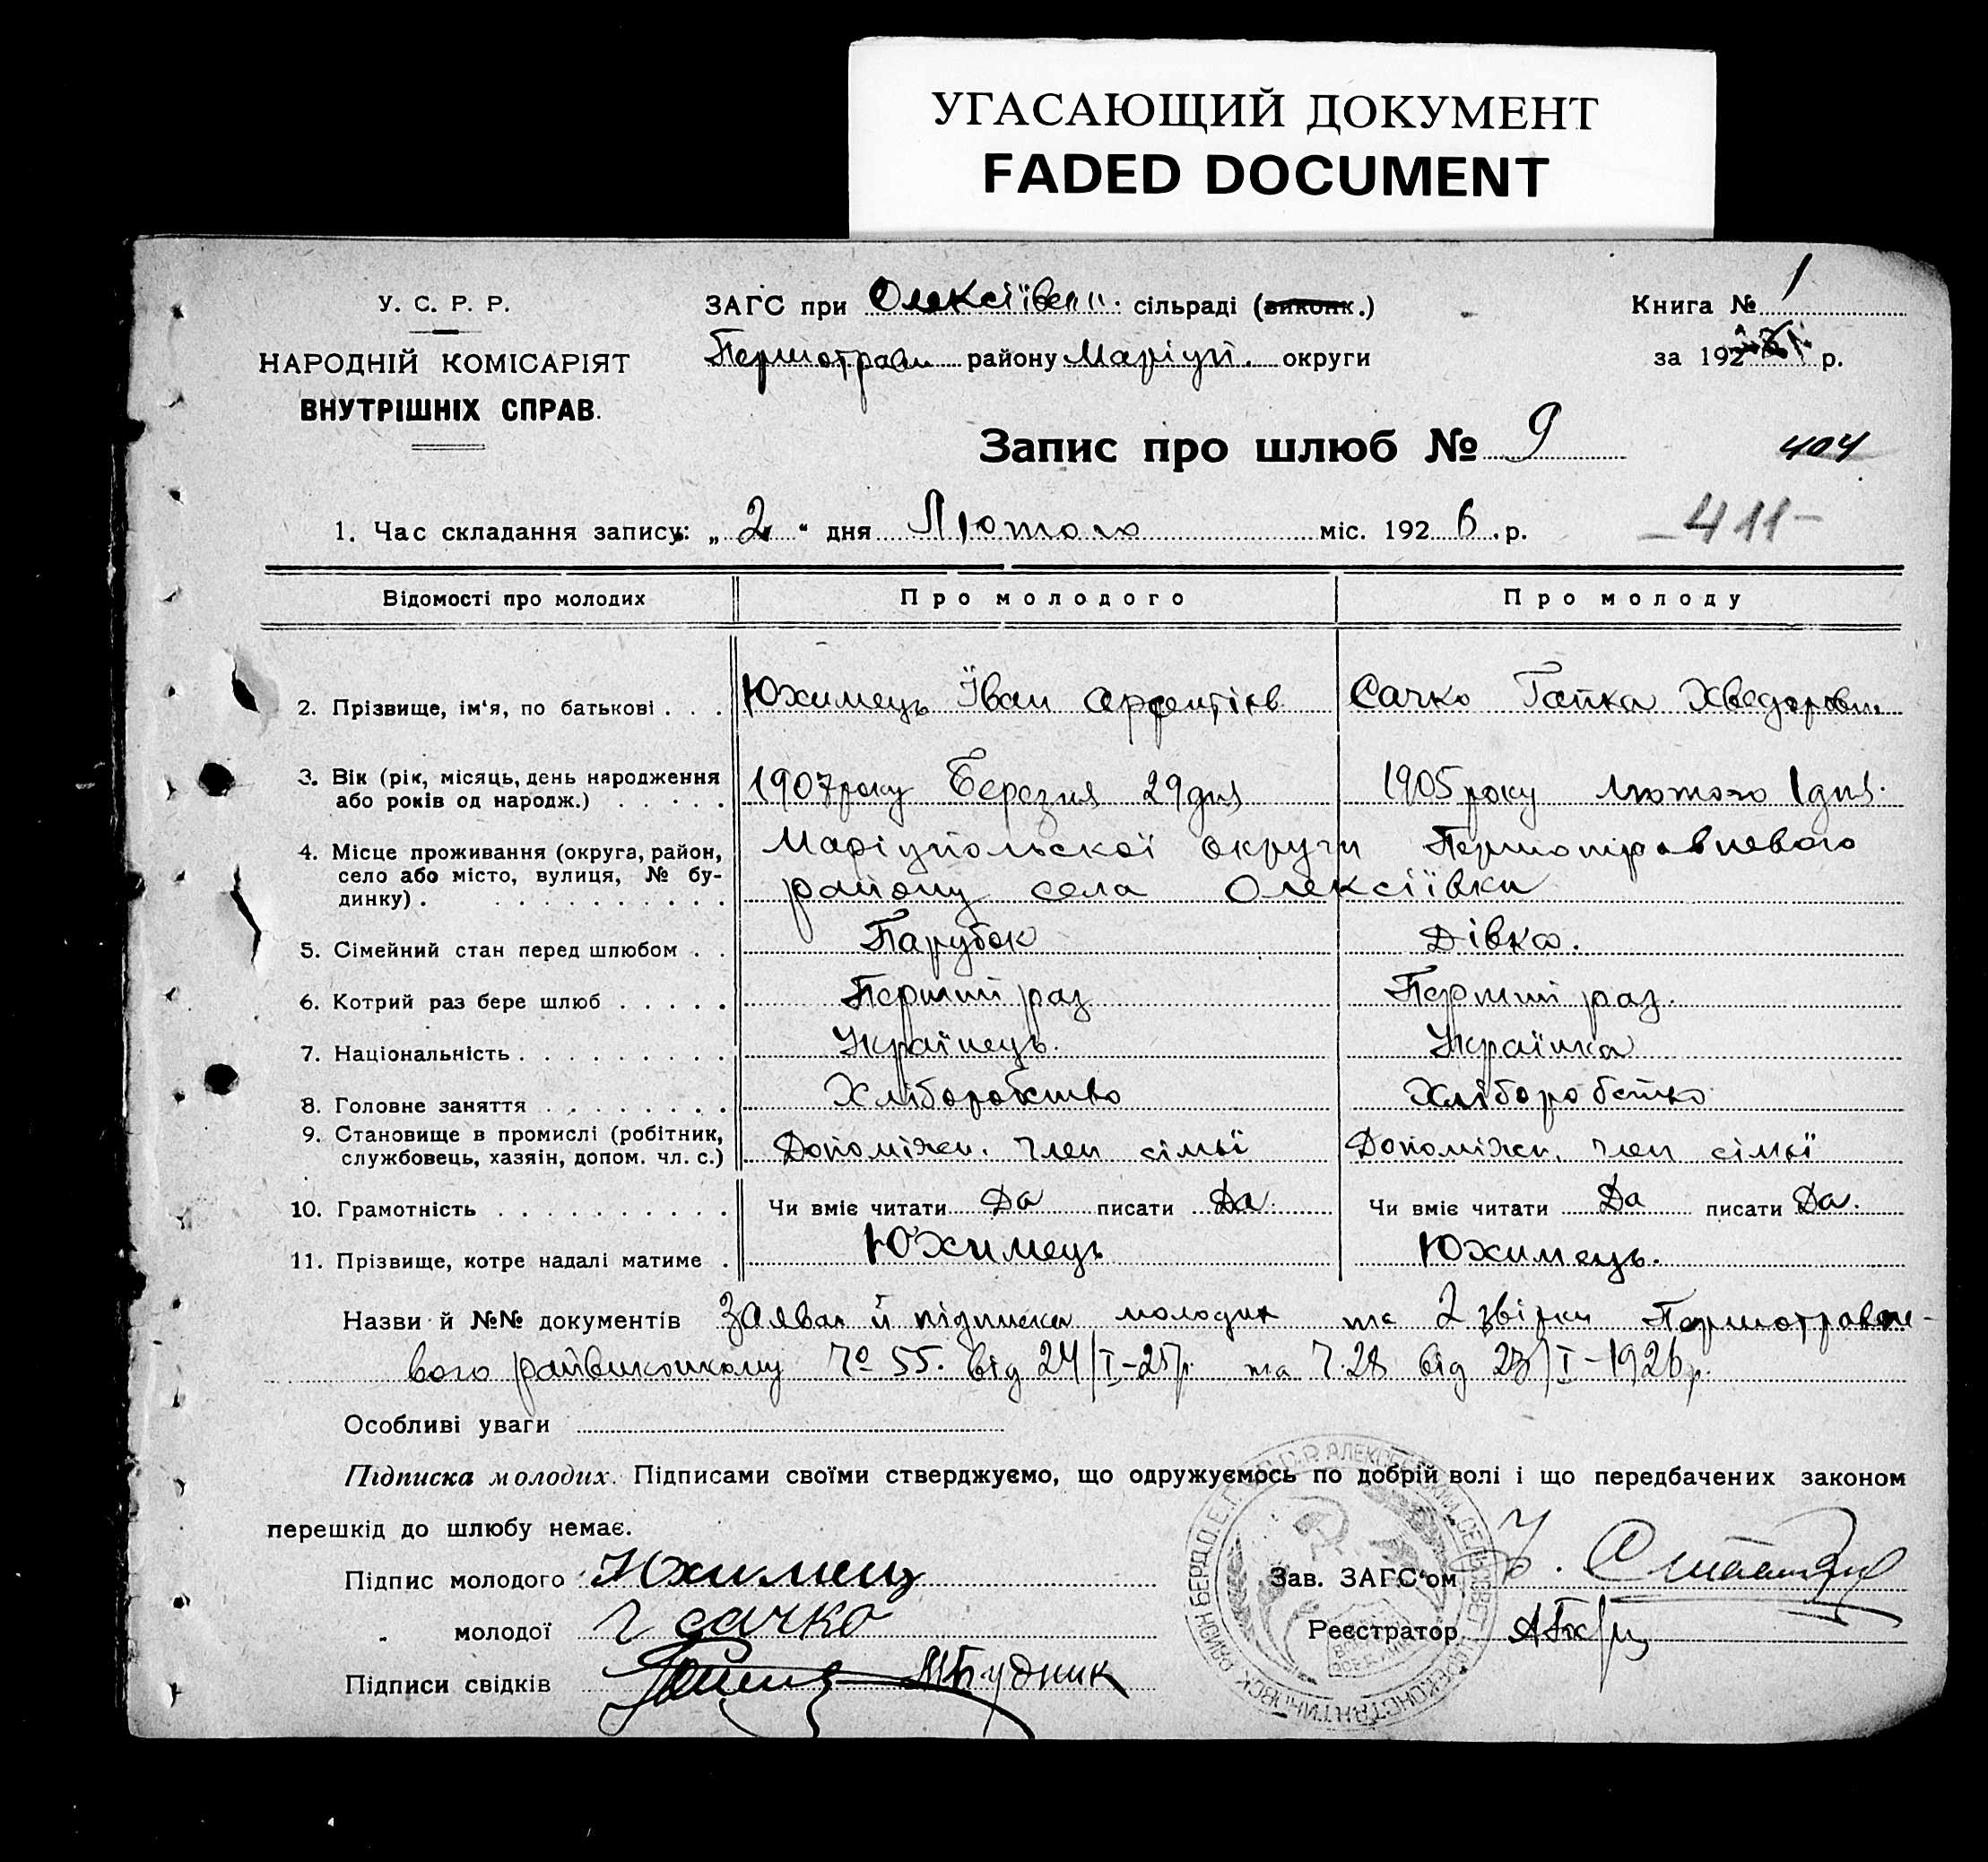 УГАСАЮЩИЙ ДОКУМЕНТ
FADED DOCUMENT
У. С. Р. Р.
НАРОДНІЙ КОМІСАРІЯТ
ВНУТРІШНІХ СПРАВ.
ЗАГС при Олексіївск. сільраді (виконк.)
Першотравн району Маріуп. округи
Книга № 1
за 192 р.
Запис про шлюб № 9
404
1. Час складання запису: „ 2 “ дня Лютого міс. 192 6 . р.
– 411 –
Відомості про молодих
Про молодого
Про молоду
2. Прізвище, ім'я, по батькові . . .
Юхимець Їван
Сачко Гапка Хведоровн.
3. Вік (рік, місяць, день народження
або років од народж.) . . . . .
1907 року Березня 29 дня
1905 року лютого 1 дня.
4. Місце проживання (округа, район,
село або місто, вулиця, № бу-
динку) . . . . . . . . . . .
Маріупольскої округи Першотравневого
району села Олексіївки
5. Сімейний стан перед шлюбом . .
Парубок
Дівка.
6. Котрий раз бере шлюб . . . . .
Перший раз
Перший раз.
7. Національність . . . . . . . . .
Українець.
Українка
8. Головне заняття . . . . . . . .
Хліборобство
Хліборобство
9. Становище в промислі (робітник,
службовець, хазяін, допом. чл. с.)
Допоміжн. член сімьї
Допоміжн. член сімьї
10. Грамотність . . . . . . . . . .
Чи вміє читати Да писати Да.
Чи вміє читати Да писати Да.
11. Прізвище, котре надалі матиме .
Юхимець
Юхимець.
Назви й №№ документів Заява й підписка молодих та 2 звізки Першотравне-
вого райвиконкому Чо 55. від 24/I-25р. та Ч. 28 від 23/I-1926р.
Особливі уваги
Підписка молодих. Підписами своїми стверджуємо, що одружуємось по добрій волі і що передбачених законом
перешкід до шлюбу немає.
Підпис молодого Юхимец
„ молодої Г сачко
Підписи свідків МБудник
Зав. ЗАГС'ом
Реєстратор